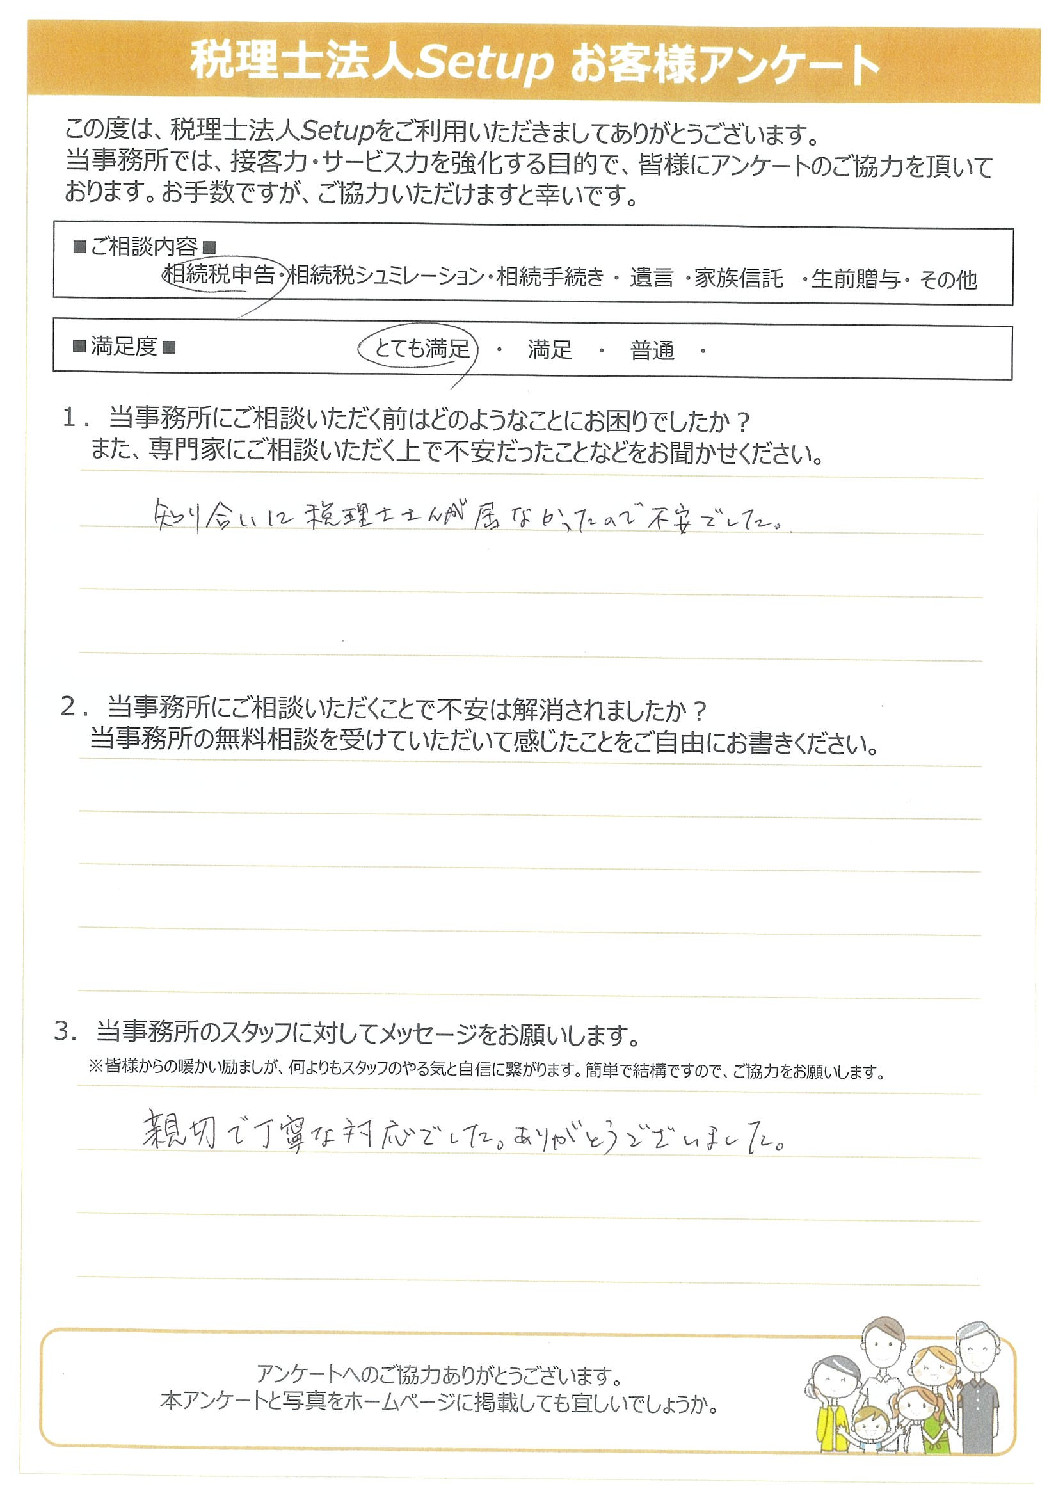 税理士法人Setup お客様アンケート
この度は、税理士法人Setupをご利用いただきましてありがとうございます。
当事務所では、接客力・サービス力を強化する目的で、皆様にアンケートのご協力を頂いて
おります。お手数ですが、ご協力いただけますと幸いです。
■ご相談内容■
相続税申告・相続税シュミレーション・相続手続き・ 遺言 ・家族信託 ・生前贈与・その他
■満足度■ とても満足 ・ 満足 ・ 普通 ・
1. 当事務所にご相談いただく前はどのようなことにお困りでしたか？
また、専門家にご相談いただく上で不安だったことなどをお聞かせください。
知り合いに税理士さんが居なかったので不安でした。
2. 当事務所にご相談いただくことで不安は解消されましたか？
当事務所の無料相談を受けていただいて感じたことをご自由にお書きください。
3. 当事務所のスタッフに対してメッセージをお願いします。
※皆様からの暖かい励ましが、何よりもスタッフのやる気と自信に繋がります。簡単で結構ですので、ご協力をお願いします。
親切で丁寧な対応でした。ありがとうございました。
アンケートへのご協力ありがとうございます。
本アンケートと写真をホームページに掲載しても宜しいでしょうか。